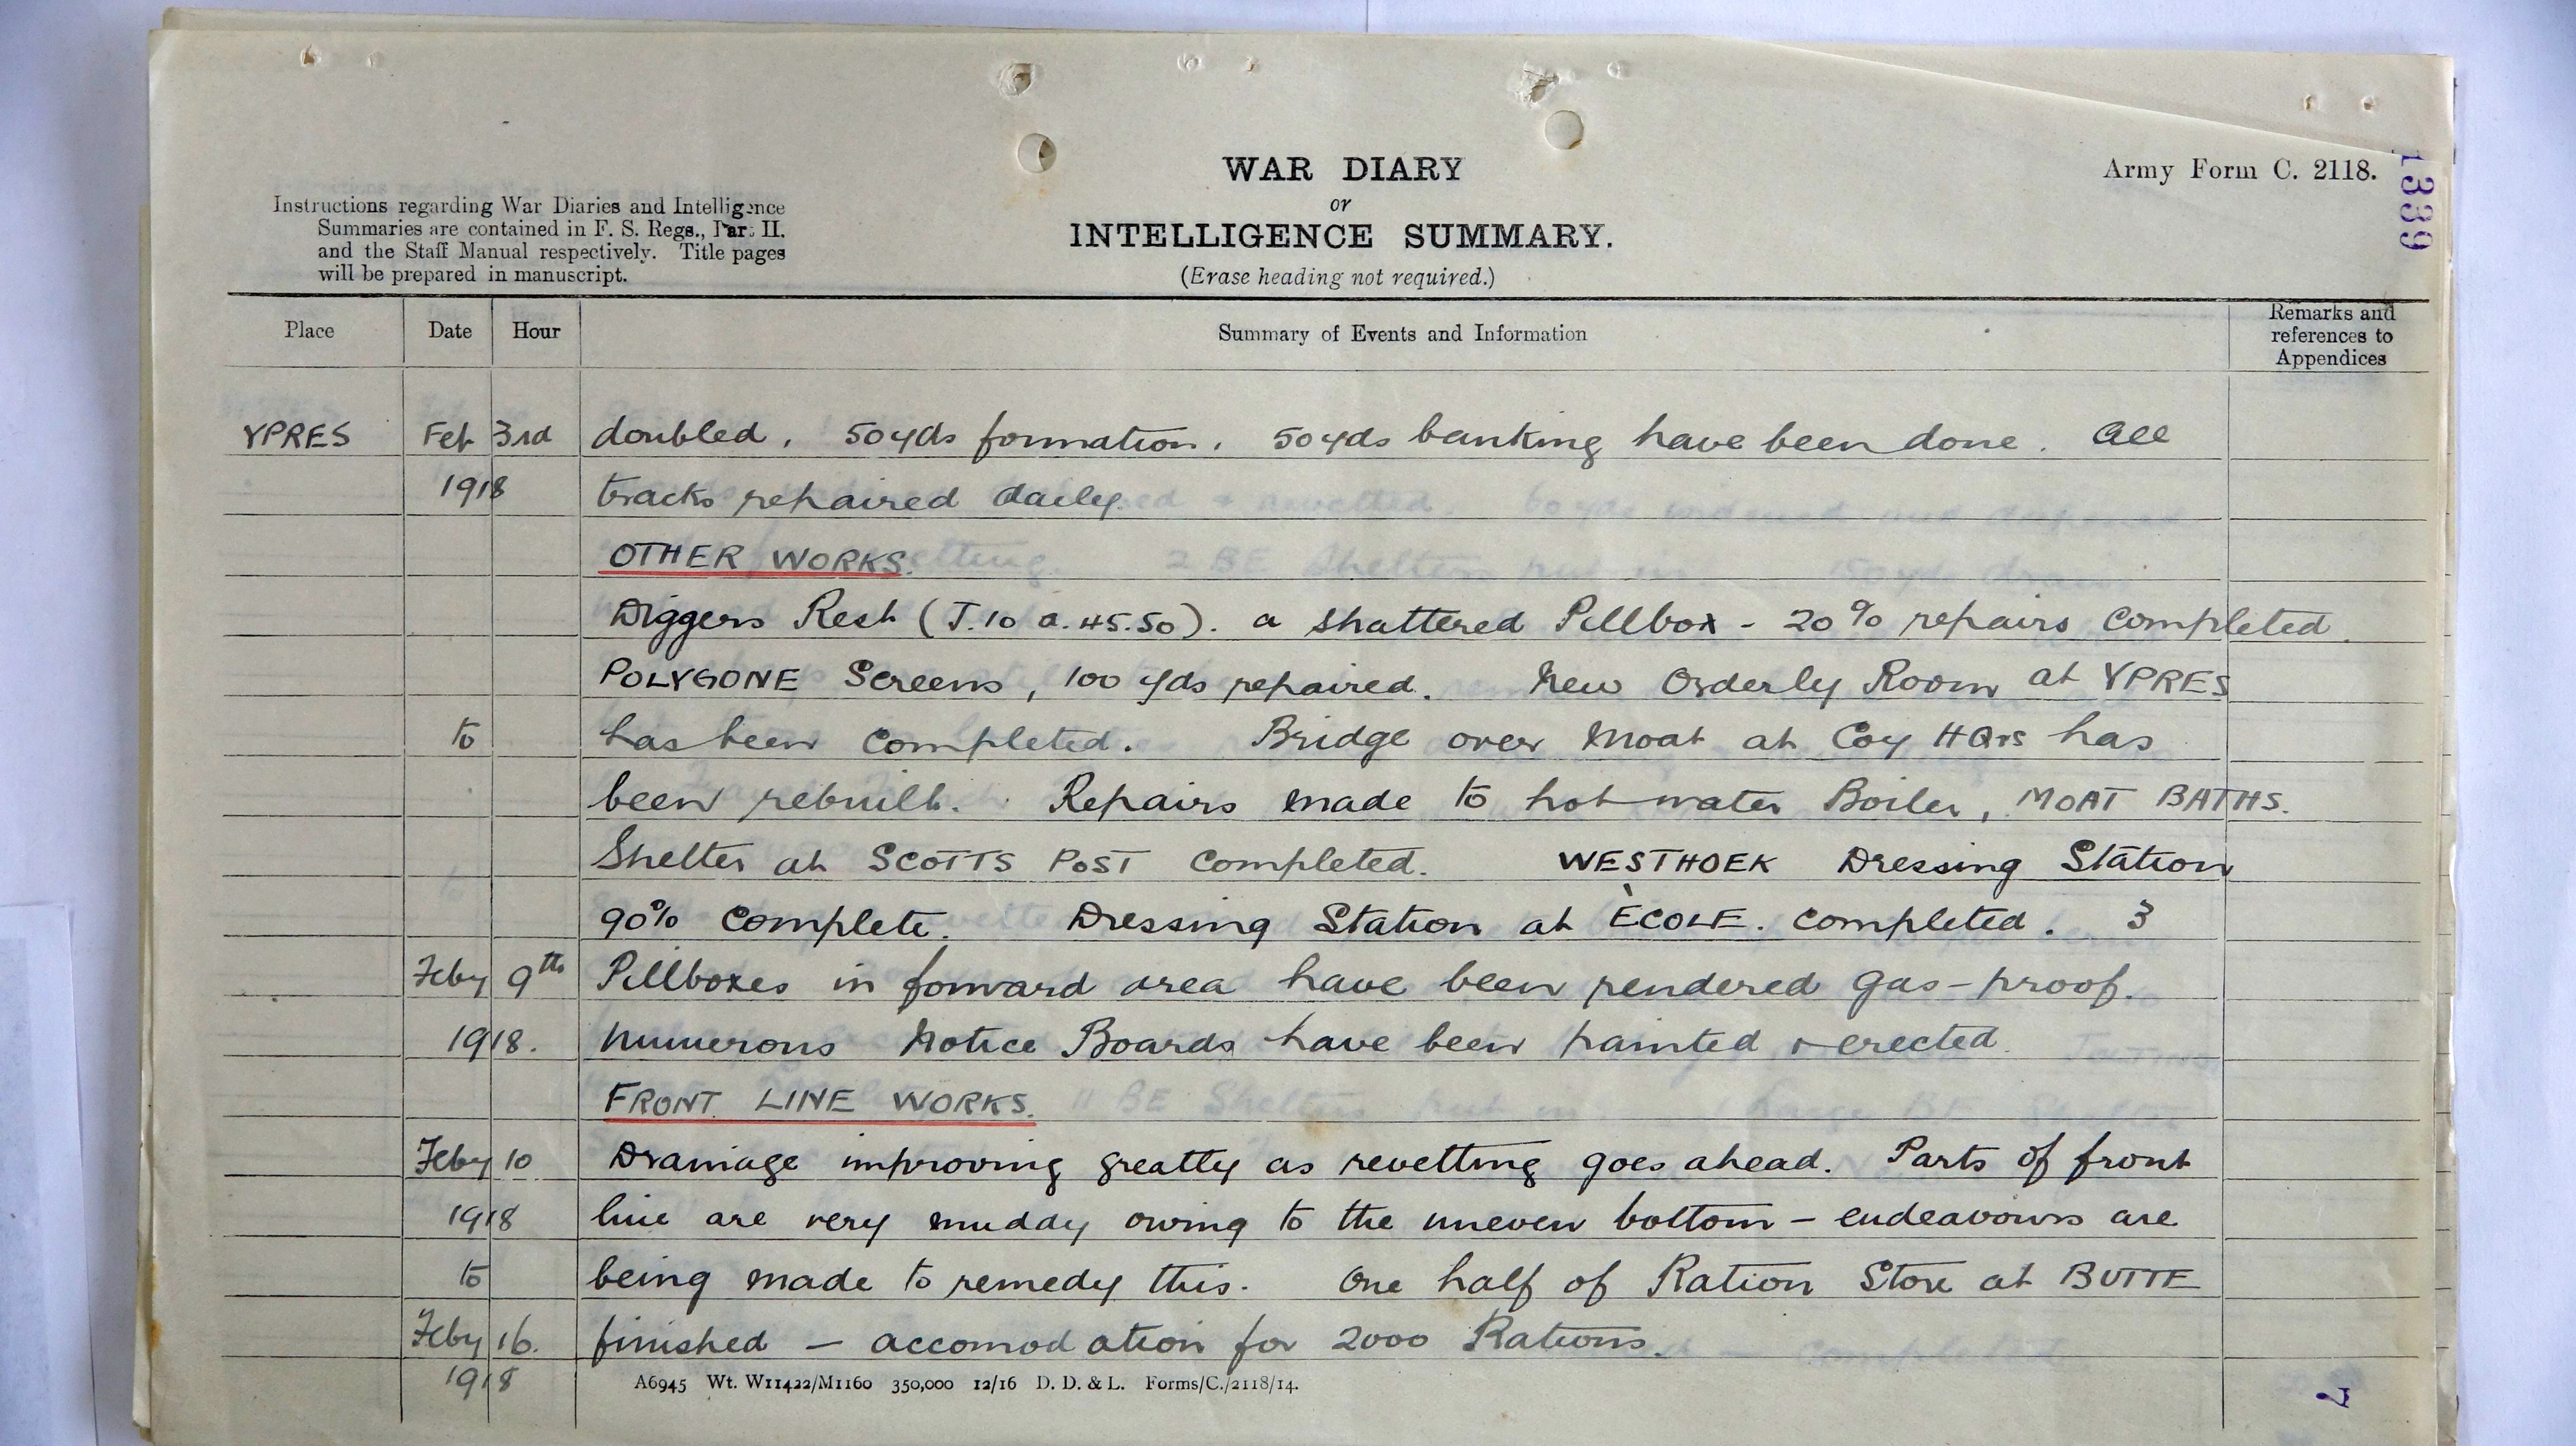 WAR DIARY
or
INTELLIGENCE SUMMARY.
(Erase heading not required.)
Army Form C. 2118.
1339
Instructions regarding War Diaries and Intelligence
Summaries are contained in F. S. Regs., Part II.
and the Staff Manual respectively. Title pages
will be prepared in manuscript.
Place Date Hour Summary of Events and Information Remarks and references to Appendices
YPRES Feb 3rd doubled. 50yds formation. 50yds banking have been done. All
1918 tracks repaired daily.
OTHER WORKS.
Diggers Rest (J.10 a.45.50). a shattered Pillbox - 20% repairs completed.
POLYGONE Screens, 100 yds repaired. New Orderly Room at YPRES
to has been completed. Bridge over Moat at Coy HQrs has
been rebuilt. Repairs made to hot water Boiler, MOAT BATHS.
Shelter at SCOTTS POST completed. WESTHOEK Dressing Station
90% complete. Dressing Station at ÈCOLE. completed. 3
Feby 9th Pillboxes in forward area have been rendered gas-proof.
1918. Numerous Notice Boards have been painted & erected.
FRONT LINE WORKS.
Feby 10 Drainage improving greatly as revetting goes ahead. Parts of front
1918 line are very muddy owing to the uneven bottom - endeavours are
to being made to remedy this. One half of Ration Store at BUTTE
Feby 16. finished - accomodation for 2000 Rations.
1918
A6945 Wt. W11422/M1160 350,000 12/16 D. D. & L. Forms/C./2118/14.
7